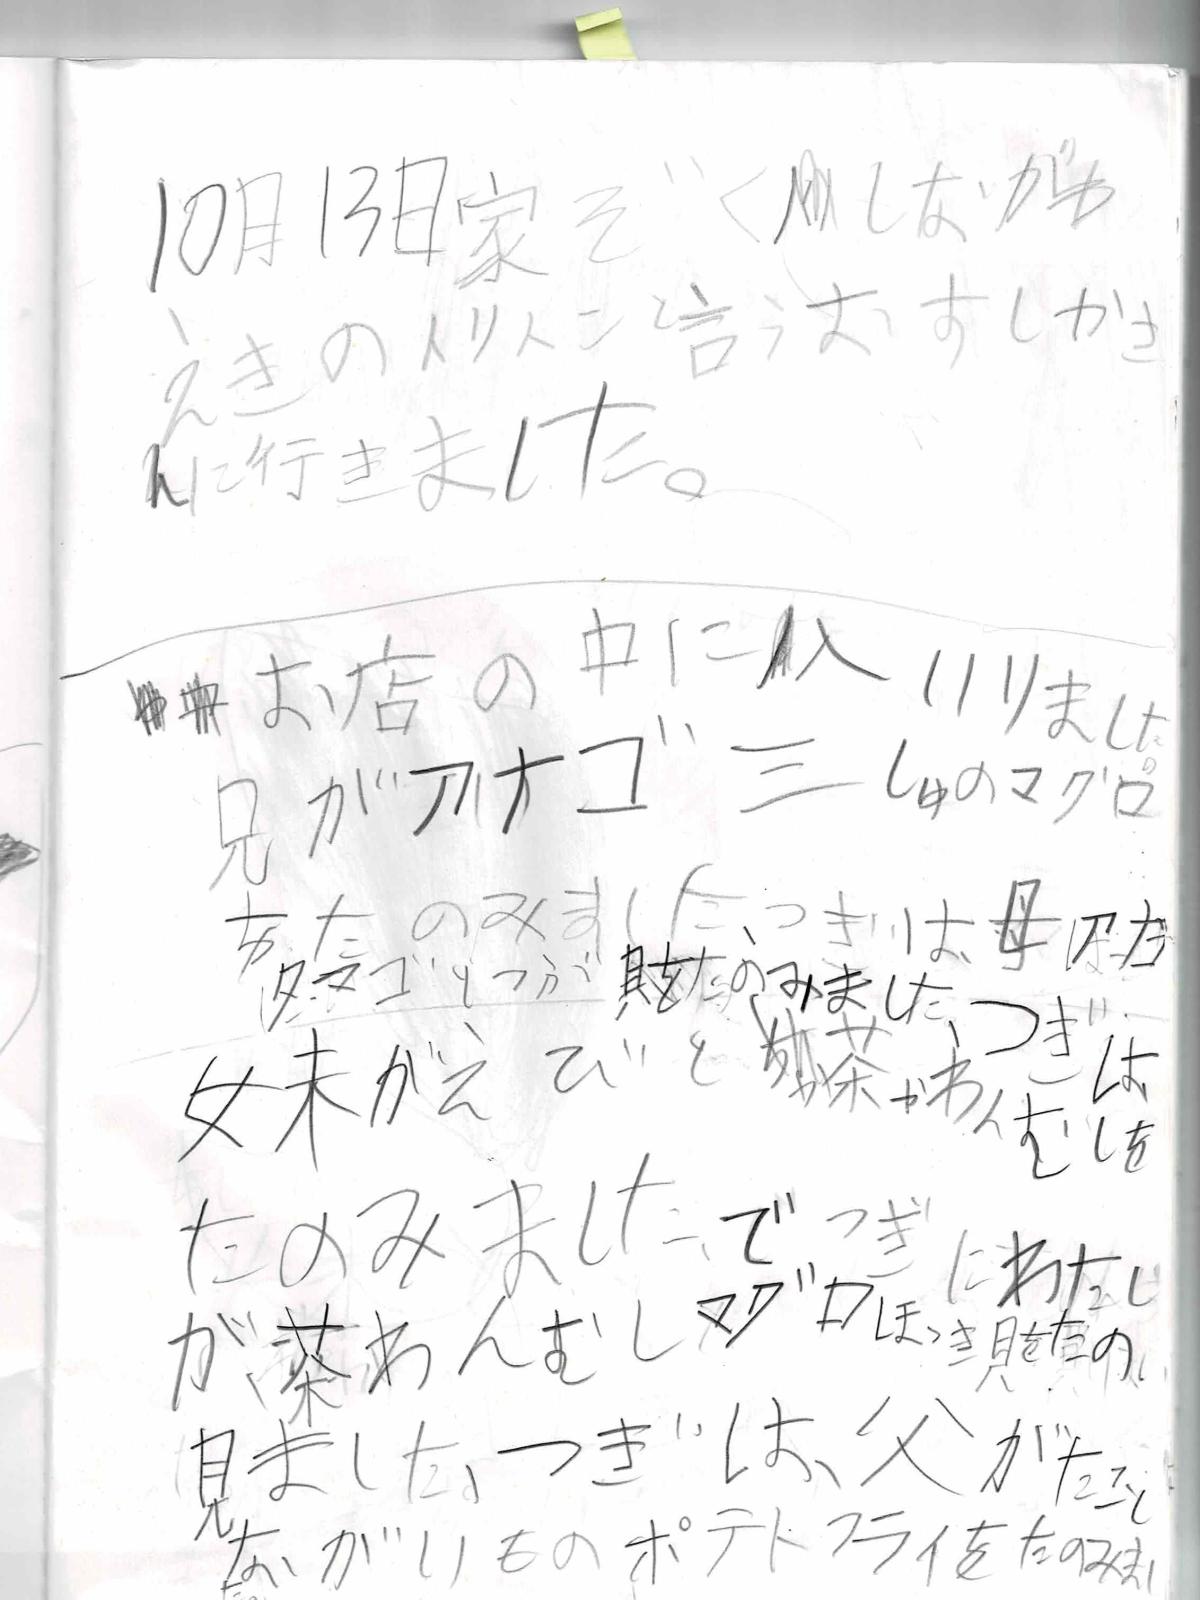 10月13日家ぞくしながわ
えきの と言うおすしか
に行きました。
お店の中に入りました
兄がアナゴ三しゅのマグロ
をたのみました、つぎは、母は
タマゴとつぶ貝をたのみました、つぎは
妹がえびと茶わんむしを
たのみました、でつぎにわたし
が茶わんむしマグロほっき貝をたの
見ました、つぎは、父がたこと
ながいものポテトフライをたのみまし